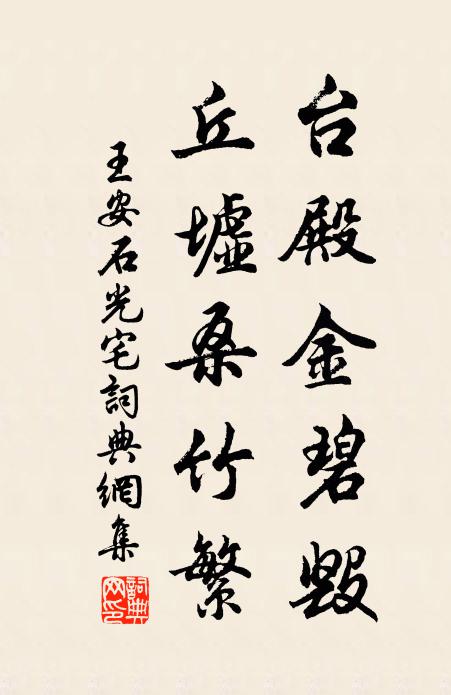 台殿金碧毀
丘墟桑竹繁
王安石光宅詞典網集
詞典網印